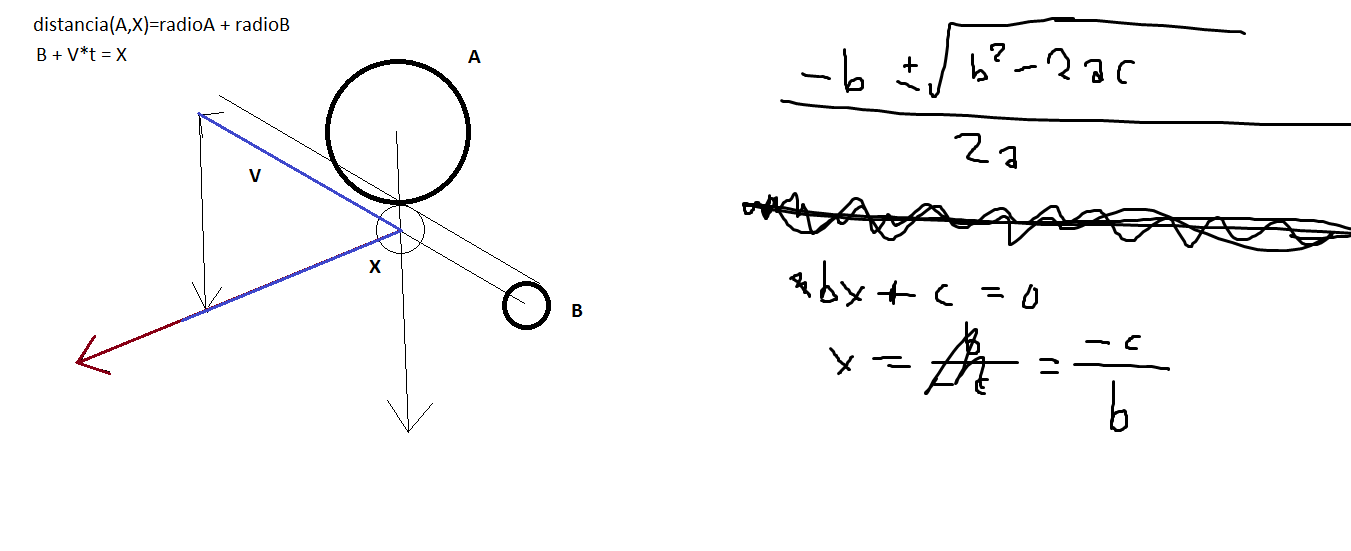 distancia(A,X)=radioA + radioB
B + V*t = X
A
V
X
B
-b ± √b² - 2ac
2a
bx + c = 0
x = = -c
b